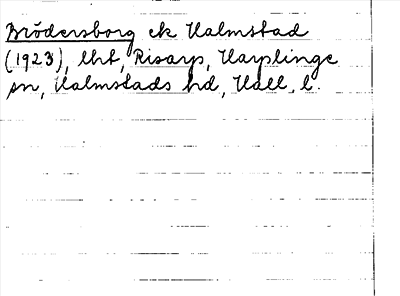 Brödersborg ek Halmstad
(1923), lht, Risarp, Harplinge
sn, Halmstads hd, Hall. l.